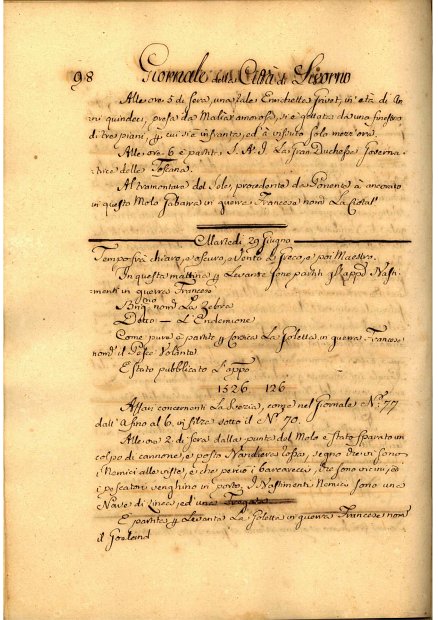 98 Giornale della Città di Livorno
Alle ore 5 di sera, una tale Enrichetta Grivet, in età di An
ni quindeci, presa da Malia amorosa, si è gettata da una finestra
di tre piani, p cui si è infranta, ed à vissuto solo mezz'ora.
Alle ore 6 è partita S. A. I. La Gran Duchessa Governa
trice della Toscana.
Al tramontare del Sole, procedente da Ponente à ancorato
in questo Molo Gabarra in guerra Francese nom La Ciotat
Martedì 29 Giugno
Tempo frà chiaro, e oscuro, e Vento di Greco, e poi Maestro.
In questa mattina p Levante sono partiti gl'app Basti
menti in guerra Francese
Brig nom La Zebra
Detto — L'Endemione
Come pure è partita p Gorgica La Goletta in guerra Francese
nom il Pesce Volante
È stato pubblicato L'app
1526 126
Affari concernenti La Svezia, come nel Giornale N. 77
dall'A fino al 6, in filza sotto il N. 70.
Alle ore 2 di sera dalla punta del Molo è stato sparato un
colpo di cannone, e posto Bandiera rossa, segno che vi sono
i Nemici alle viste, e che perciò i barcarecci che sono vicini, ed
i pescatori venghino in porto. I Bastimenti Nemici sono una
Nave di Linea, ed una Fregata
È partita p Levante La Goletta in guerra Francese nom
il Goeland